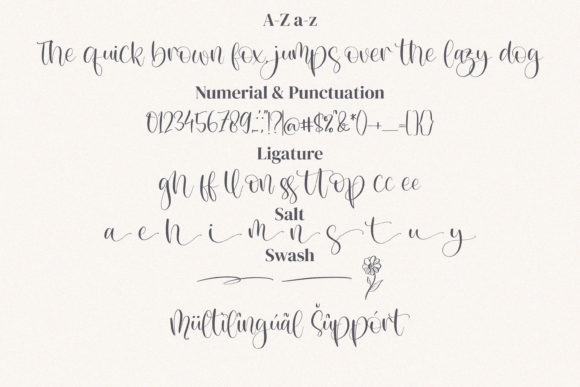 A-Z a-z
The quick brown fox jumps over the lazy dog
Numerial & Punctuation
0123456789.,:;"!?|@#$%&*()-+_={}{}
Ligature
gh ff ll on ss tt op cc ee
Salt
a e h i m n s t u y
Swash
Mültïlîngúãl Šûppórt